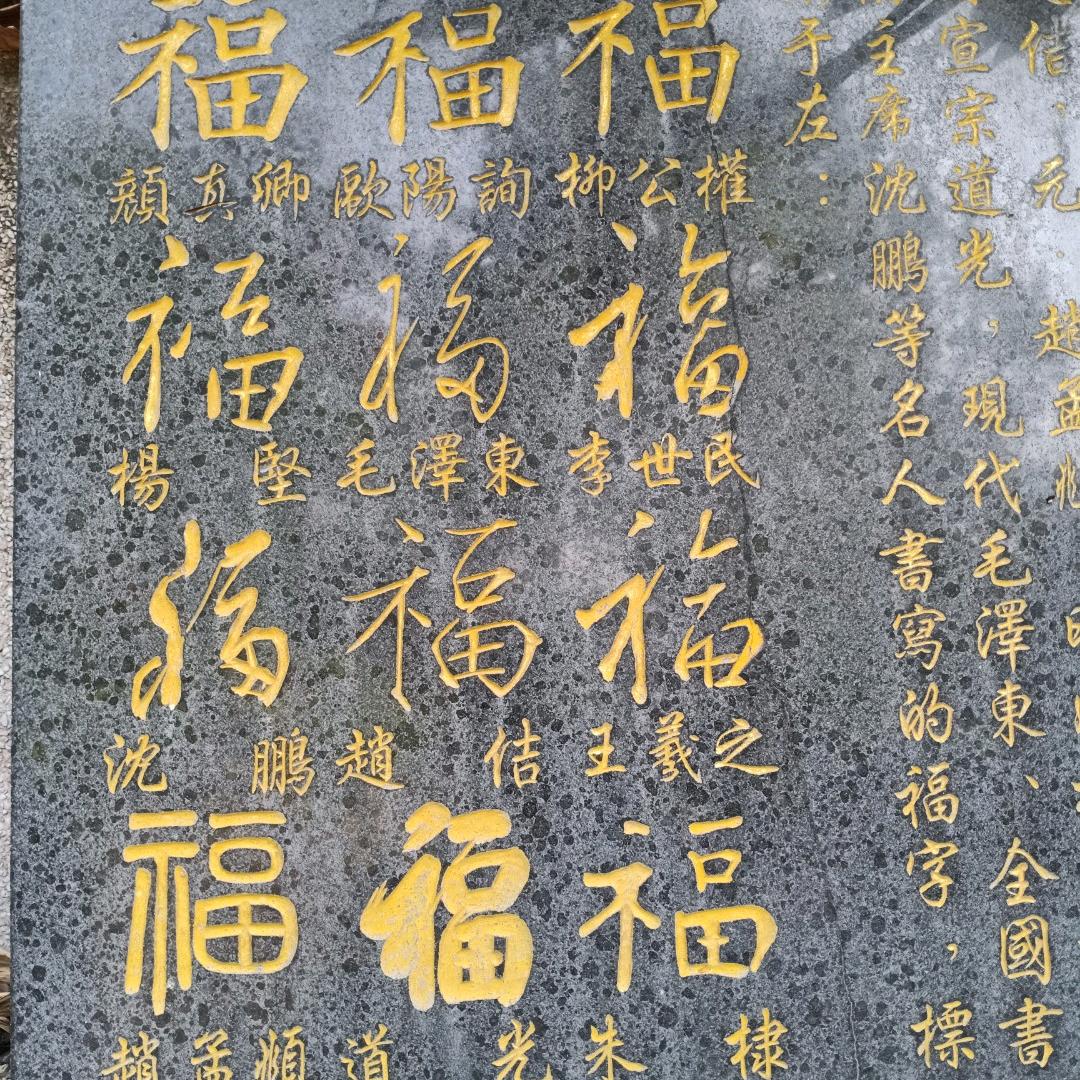 佶，元·趙孟頫
宣宗道光，現代毛澤東、全國書
主席沈鵬等名人書寫的福字，標
于左：
福 福 福
顏真卿 歐陽詢 柳公權
福 福 福
楊堅 毛澤東 李世民
福 福 福
沈鵬 趙佶 王羲之
福 福 福
趙孟頫 道光 朱棣